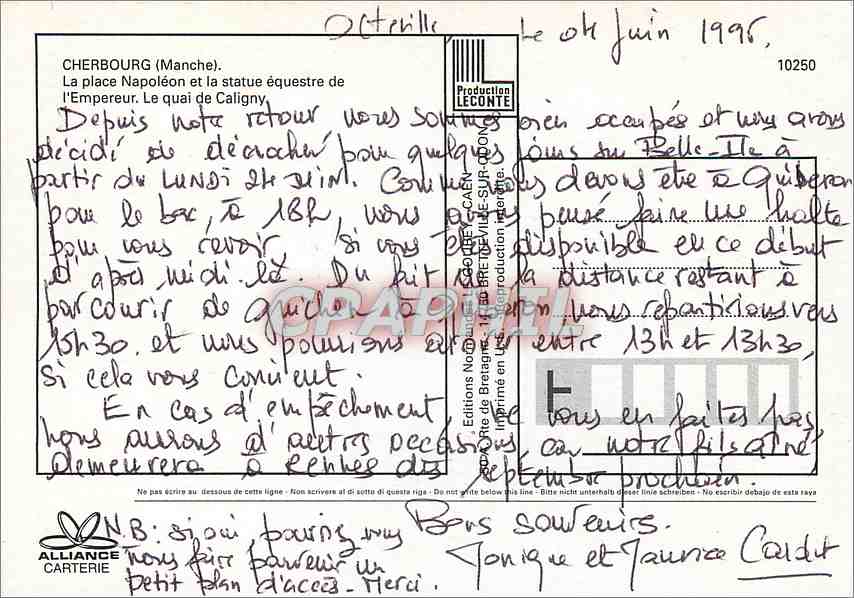 Octeville, Le 04 Juin 1996.
CHERBOURG (Manche).
La place Napoléon et la statue équestre de
l'Empereur. Le quai de Caligny.
Production
LECONTE
10250
Depuis notre retour, nous sommes bien occupés et nous avons
décidé de décrocher pour quelques jours sur Belle-Ile à
partir du LUNDI 24 JUIN. Comme nous devons être à Quiberon
pour le bac, à 18h, nous avons pensé faire une halte
pour vous revoir, si vous êtes disponible en ce début
d'après midi là. Du fait de la distance restant à
parcourir de Guichen à Quiberon, nous repartirions vers
15h30 et nous pourrions arriver entre 13h et 13h30,
si cela vous convient.
En cas d'empêchement, ne vous en faites pas,
nous aurons d'autres occasions, car notre fils aîné
demeurera à Rennes dès septembre prochain.
Editions Normandes LE GOUBEY - CAEN
Rte de Bretagne - BRETTEVILLE-SUR-ODON
Imprimé en reproduction interdite.
CPARAMA
Ne pas écrire au dessous de cette ligne - Non scrivere al di sotto di questa riga - Do not write below this line - Bitte nicht unterhalb dieser linie schreiben - No escribir debajo de esta raya
Bons souvenirs.
Monique et Maurice Cardit
N.B: si oui pourriez vous
nous faire parvenir un
petit plan d'accès - Merci.
ALLIANCE
CARTERIE